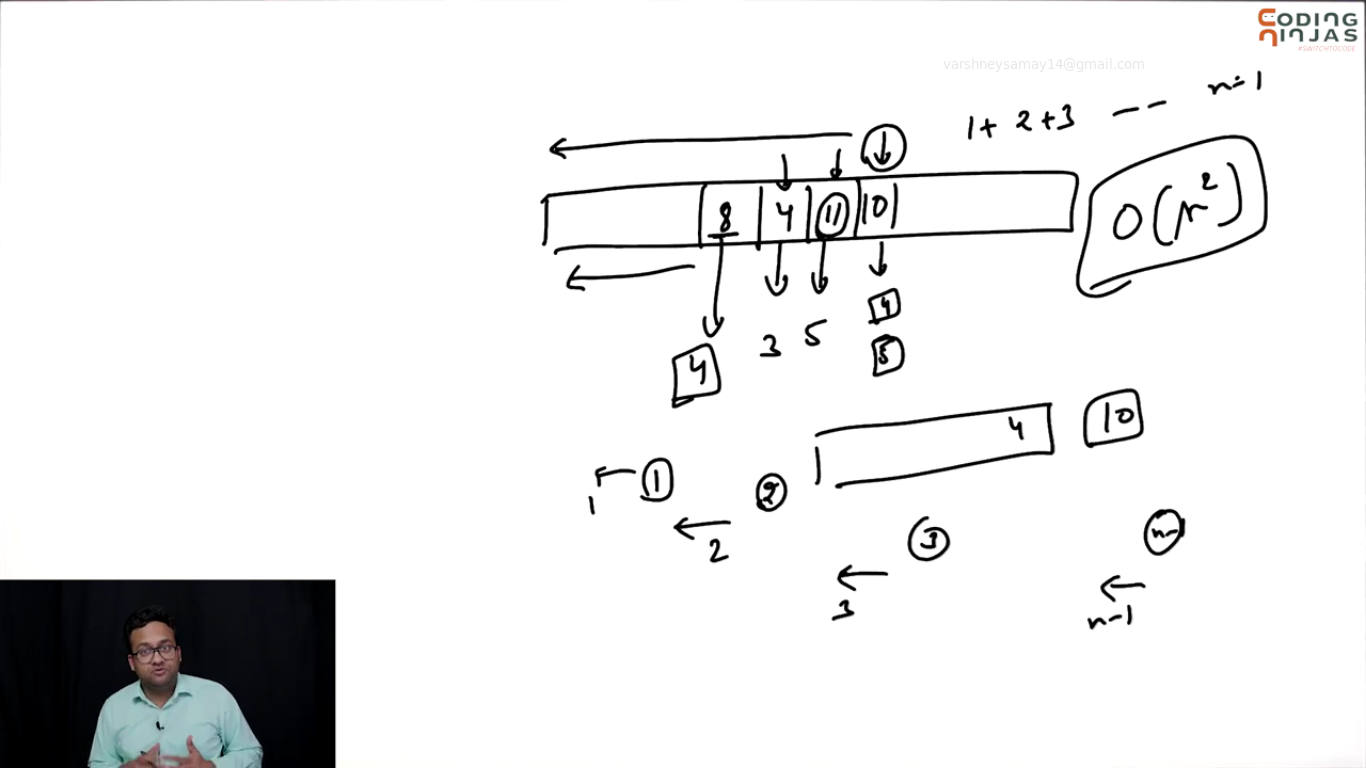 CODING
NINJAS
#SWITCHTOCODE
varshneysamay14@gmail.com
1 + 2 + 3 -- n-1
8 4 11 10
O(n²)
4
4 3 5 5
4 10
1 2
1
2 3 n-1
3 n-1